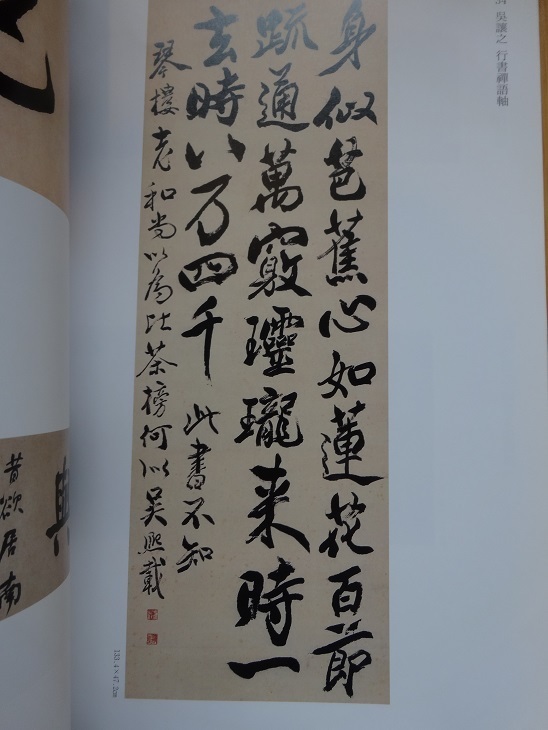 吳讓之 行書禪語軸
身似芭蕉心如蓮花百節
疏通萬竅玲瓏来時一
去時八万四千 此書不知
琴樓老和尚以為比茶榜何似吴熙載
133.4×47.2cm
昔欲居南